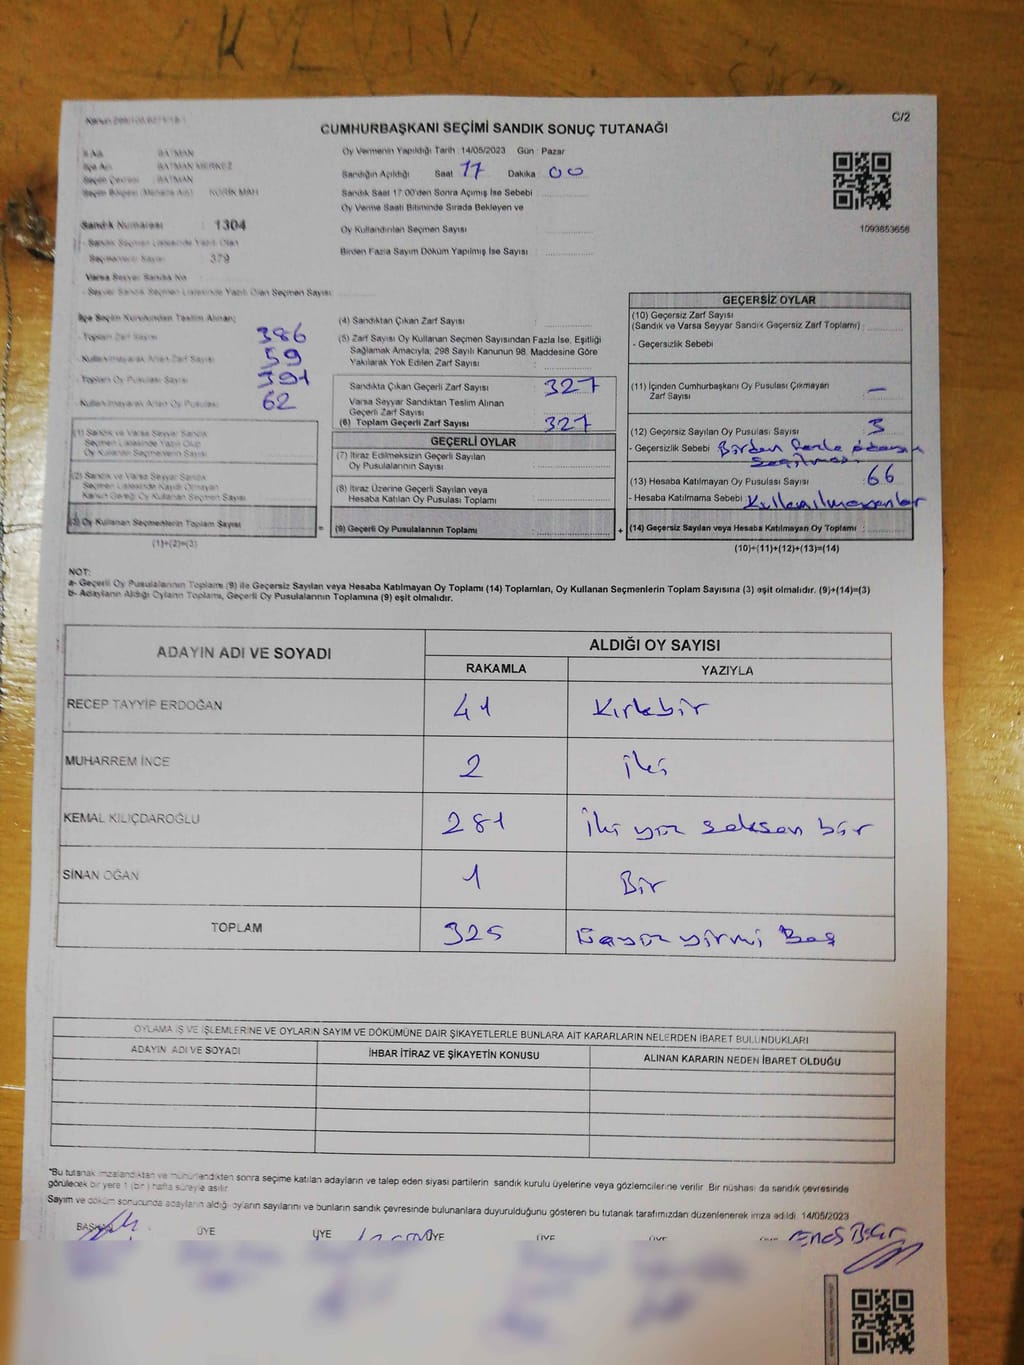 C/2
CUMHURBAŞKANI SEÇİMİ SANDIK SONUÇ TUTANAĞI
İli Adı BATMAN
İlçe Adı BATMAN MERKEZ
Seçim Çevresi BATMAN
Seçim Bölgesi (Mahalle Adı) KORİK MAH
Sandık Numarası : 1304
- Sandık Seçmen Listesinde Yazılı Olan
Seçmenlerin Sayısı 379
Varsa Seyyar Sandık No
- Seyyar Sandık Seçmen Listesinde Yazılı Olan Seçmen Sayısı
Oy Vermenin Yapıldığı Tarih :14/05/2023 Gün Pazar
Sandığın Açıldığı Saat 17 Dakika 00
Sandık Saat 17:00'den Sonra Açılmış İse Sebebi
Oy Verme Saati Bitiminde Sırada Bekleyen ve
Oy Kullandırılan Seçmen Sayısı
Birden Fazla Sayım Döküm Yapılmış İse Sayısı
1093853656
İlçe Seçim Kurulundan Teslim Alınan;
- Toplam Zarf Sayısı 386
- Kullanılmayarak Artan Zarf Sayısı 59
- Toplam Oy Pusulası Sayısı 391
- Kullanılmayarak Artan Oy Pusulası 62
(1) Sandık ve Varsa Seyyar Sandık
Seçmen Listesinde Yazılı Olup
Oy Kullanan Seçmenlerin Sayısı
(2) Sandık ve Varsa Seyyar Sandık
Seçmen Listesinde Kayıtlı Olmayan
Kanun Gereği Oy Kullanan Seçmen Sayısı
(3) Oy Kullanan Seçmenlerin Toplam Sayısı =
(1)+(2)=(3)
(4) Sandıktan Çıkan Zarf Sayısı
(5) Zarf Sayısı Oy Kullanan Seçmen Sayısından Fazla İse, Eşitliği
Sağlamak Amacıyla; 298 Sayılı Kanunun 98. Maddesine Göre
Yakılarak Yok Edilen Zarf Sayısı
Sandıkta Çıkan Geçerli Zarf Sayısı 327
Varsa Seyyar Sandıktan Teslim Alınan
Geçerli Zarf Sayısı
(6) Toplam Geçerli Zarf Sayısı 327
GEÇERLİ OYLAR
(7) İtiraz Edilmeksizin Geçerli Sayılan
Oy Pusulalarının Sayısı
(8) İtiraz Üzerine Geçerli Sayılan veya
Hesaba Katılan Oy Pusulası Toplamı
(9) Geçerli Oy Pusulalarının Toplamı +
GEÇERSİZ OYLAR
(10) Geçersiz Zarf Sayısı
(Sandık ve Varsa Seyyar Sandık Geçersiz Zarf Toplamı)
- Geçersizlik Sebebi
(11) İçinden Cumhurbaşkanı Oy Pusulası Çıkmayan
Zarf Sayısı –
(12) Geçersiz Sayılan Oy Pusulası Sayısı 3
- Geçersizlik Sebebi Birden fazla adayın
seçilmesi
(13) Hesaba Katılmayan Oy Pusulası Sayısı :66
- Hesaba Katılmama Sebebi Kullanılmayanlar
(14) Geçersiz Sayılan veya Hesaba Katılmayan Oy Toplamı :
(10)+(11)+(12)+(13)=(14)
NOT:
a- Geçerli Oy Pusulalarının Toplamı (9) ile Geçersiz Sayılan veya Hesaba Katılmayan Oy Toplamı (14) Toplamları, Oy Kullanan Seçmenlerin Toplam Sayısına (3) eşit olmalıdır. (9)+(14)=(3)
b- Adayların Aldığı Oyların Toplamı, Geçerli Oy Pusulalarının Toplamına (9) eşit olmalıdır.
ADAYIN ADI VE SOYADI ALDIĞI OY SAYISI
RAKAMLA YAZIYLA
RECEP TAYYİP ERDOĞAN 41 Kırkbir
MUHARREM İNCE 2 İki
KEMAL KILIÇDAROĞLU 281 İki yüz seksen bir
SİNAN OĞAN 1 Bir
TOPLAM 325 yirmi Beş
OYLAMA İŞ VE İŞLEMLERİNE VE OYLARIN SAYIM VE DÖKÜMÜNE DAİR ŞİKAYETLERLE BUNLARA AİT KARARLARIN NELERDEN İBARET BULUNDUKLARI
ADAYIN ADI VE SOYADI İHBAR İTİRAZ VE ŞİKAYETİN KONUSU ALINAN KARARIN NEDEN İBARET OLDUĞU
*Bu tutanak imzalandıktan ve mühürlendikten sonra seçime katılan adayların ve talep eden siyasi partilerin sandık kurulu üyelerine veya gözlemcilerine verilir. Bir nüshası da sandık çevresinde
görülecek bir yere 1 (bir) hafta süreyle asılır.
Sayım ve döküm sonucunda adayların aldığı oyların sayılarını ve bunların sandık çevresinde bulunanlara duyurulduğunu gösteren bu tutanak tarafımızdan düzenlenerek imza edildi. 14/05/2023
BAŞKAN ÜYE ÜYE ÜYE ÜYE ÜYE